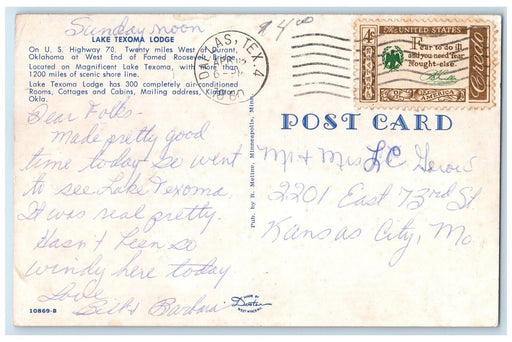 Sunday noon
$4.00
LAKE TEXOMA LODGE
On U. S. Highway 70. Twenty miles West of Durant,
Oklahoma at West End of Famed Roosevelt Bridge.
Located on Magnificent Lake Texoma, with more than
1200 miles of scenic shore line.
Lake Texoma Lodge has 300 completely airconditioned
Rooms, Cottages and Cabins, Mailing address,
Okla.
DALLAS, TEX. 4
1960
4¢ UNITED STATES
Fear to do ill,
and you need fear
Nought else.
Credo
OF AMERICA
POST CARD
Dear Folks.
Made pretty good
time today so went
to see Lake Texoma.
It was real pretty.
Hasn't been so
windy here today
Love
Barbara
Mr & Mrs L C
2201 East 73rd St
Kansas City, Mo.
Pub. by R. Meline, Minneapolis, Minn.
10869-B
Dexter
WEST NYACK, N.Y.